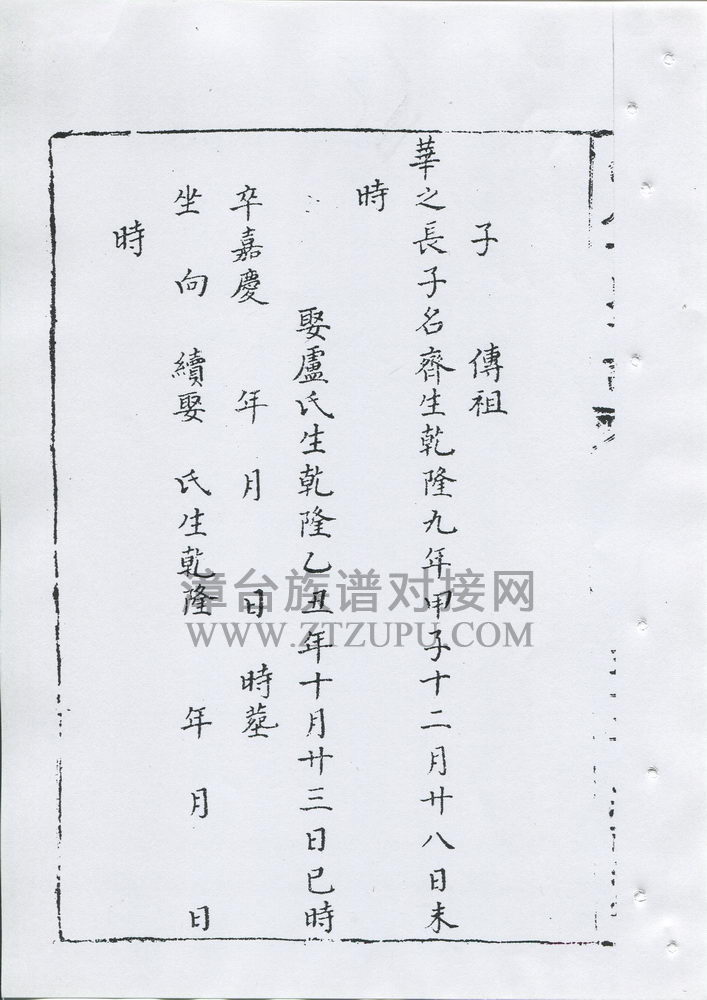 子　傳祖
華之長子名齊生乾隆九年甲子十二月廿八日未
時
娶盧氏生乾隆乙丑年十月廿三日巳時
卒嘉慶　年　月　日　時塟
坐　向　續娶　氏生乾隆　年　月　日
時
漳台族谱对接网
WWW.ZTZUPU.COM